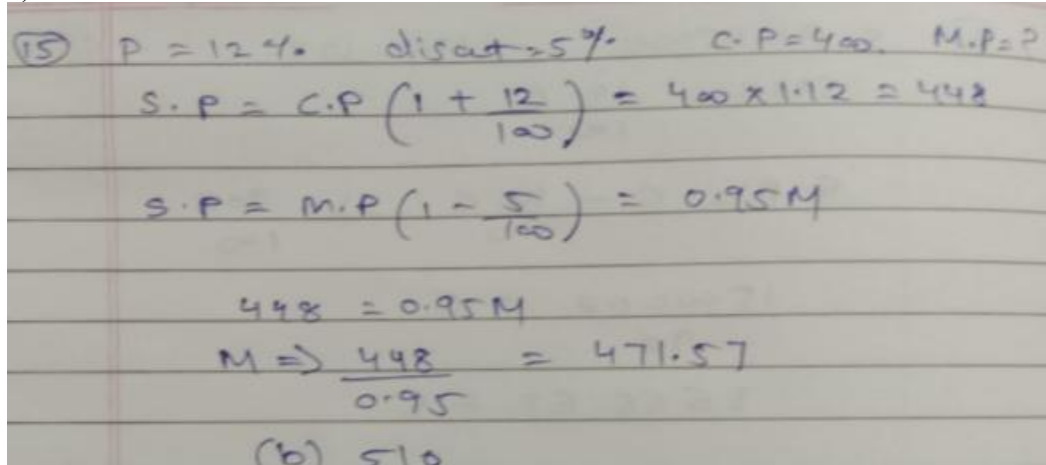 15 P = 12 %. disat = 5 % C.P = 400. M.P = ?
S.P = C.P (1 + 12/100) = 400 x 1.12 = 448
S.P = M.P (1 - 5/100) = 0.95M
448 = 0.95M
M => 448/0.95 = 471.57
(b) 510